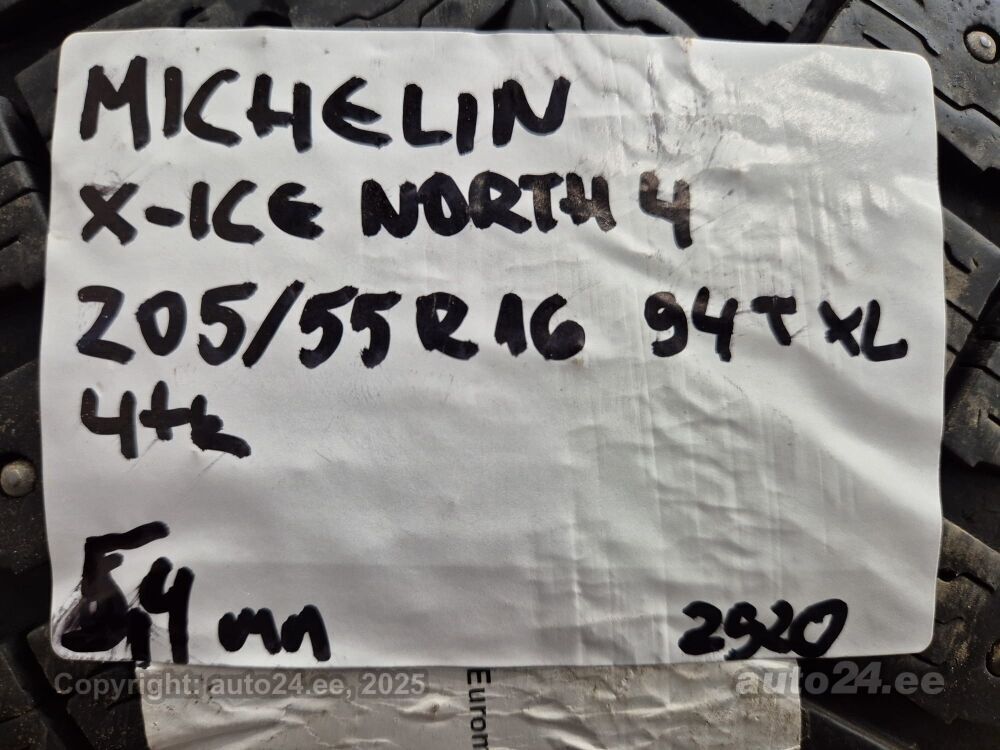 MICHELIN
X-ICE NORTH 4
205/55R16 94T XL
4tk
5,4 mm
2920
Copyright: auto24.ee, 2025
auto24.ee
Eurom